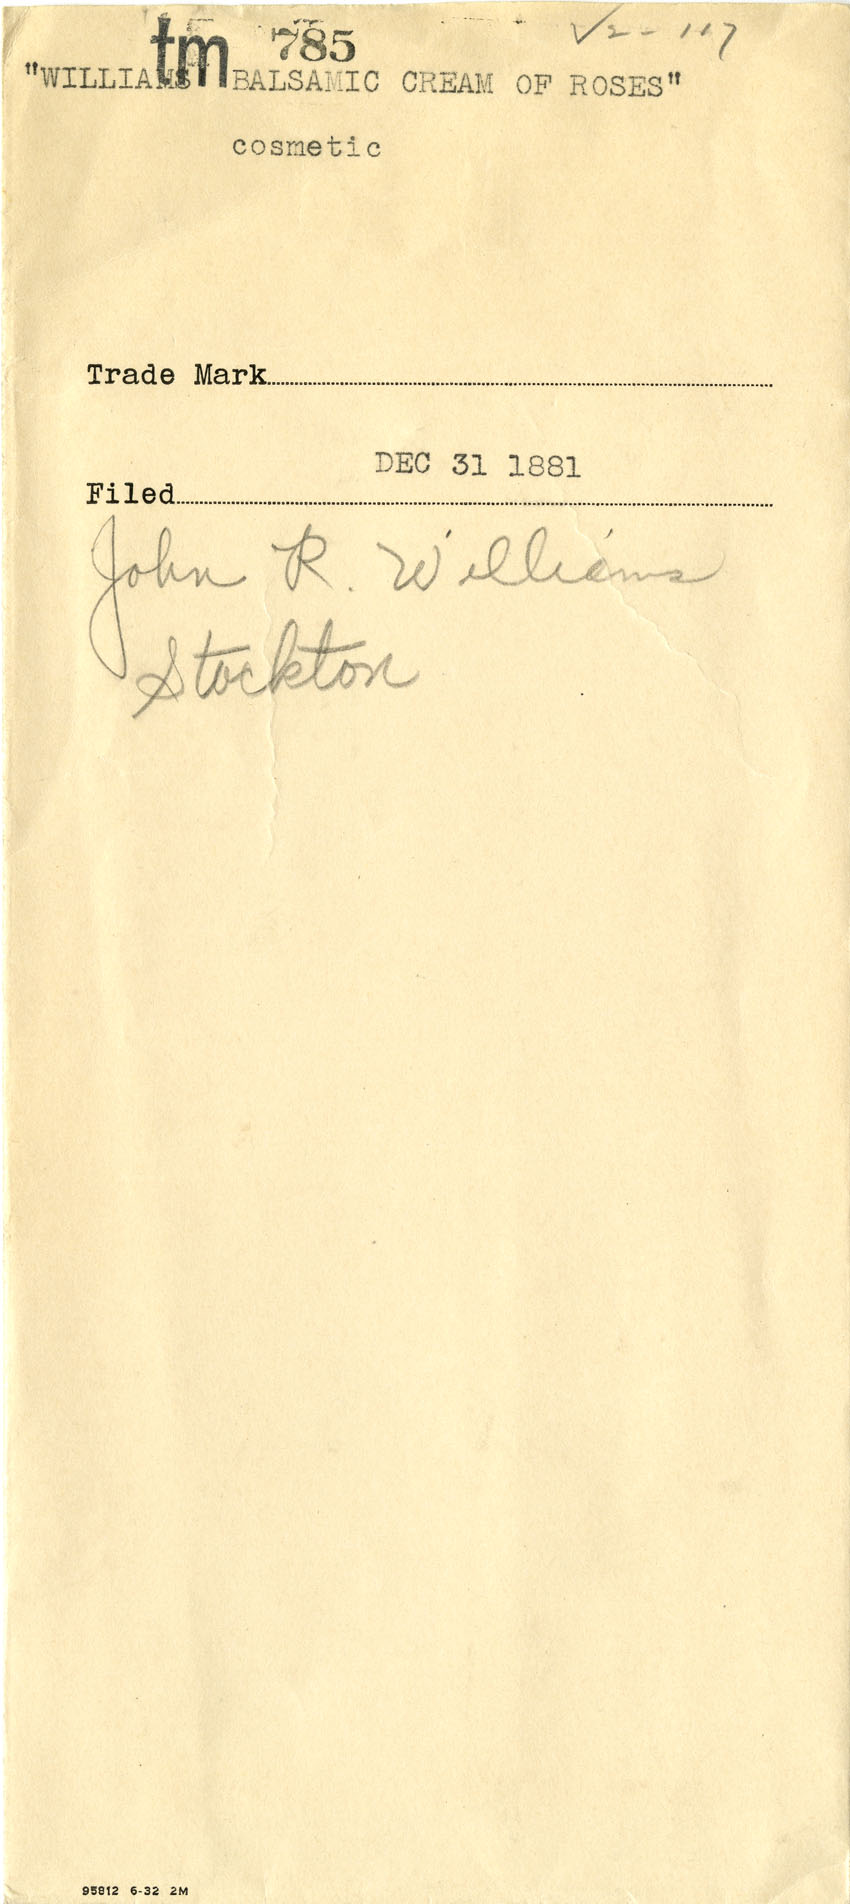 tm 785 √2-117
"WILLIAMS BALSAMIC CREAM OF ROSES"
cosmetic
Trade Mark
DEC 31 1881
Filed
John R. Williams
Stockton
95812 6-32 2M